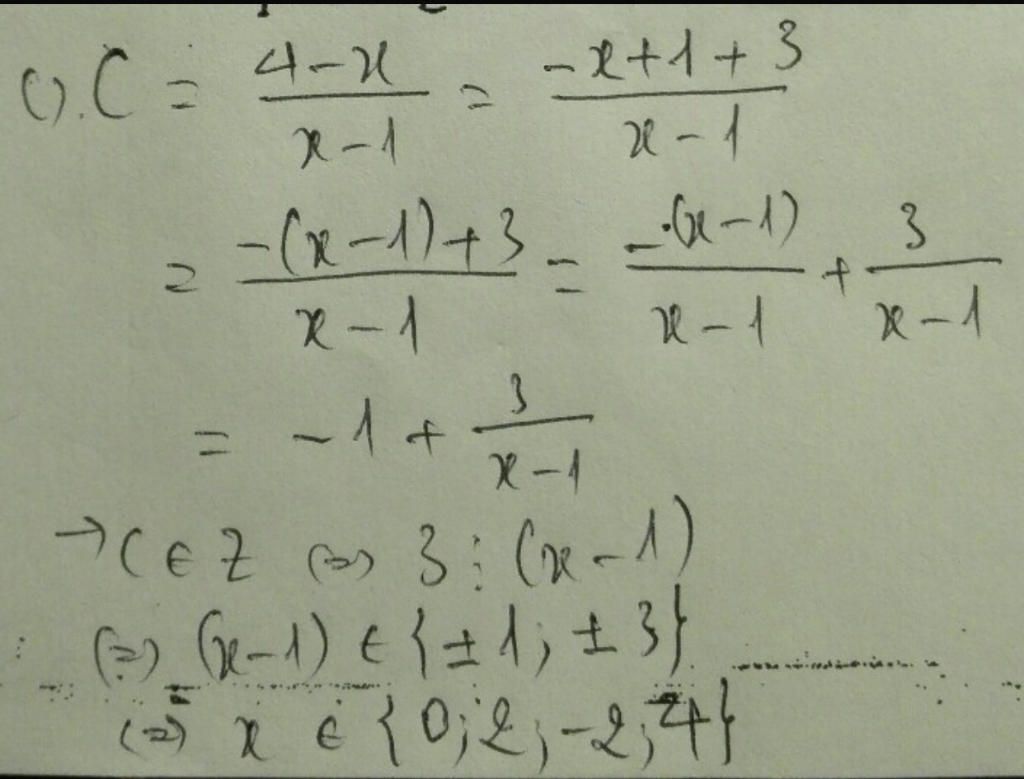 c). C = \frac{4-x}{x-1} = \frac{-x+1+3}{x-1}
= \frac{-(x-1)+3}{x-1} = \frac{-(x-1)}{x-1} + \frac{3}{x-1}
= -1 + \frac{3}{x-1}
→ C ∈ Z ⇔ 3 ⋮ (x-1)
⇔ (x-1) ∈ {±1; ±3}
⇔ x ∈ {0; 2; -2; 4}